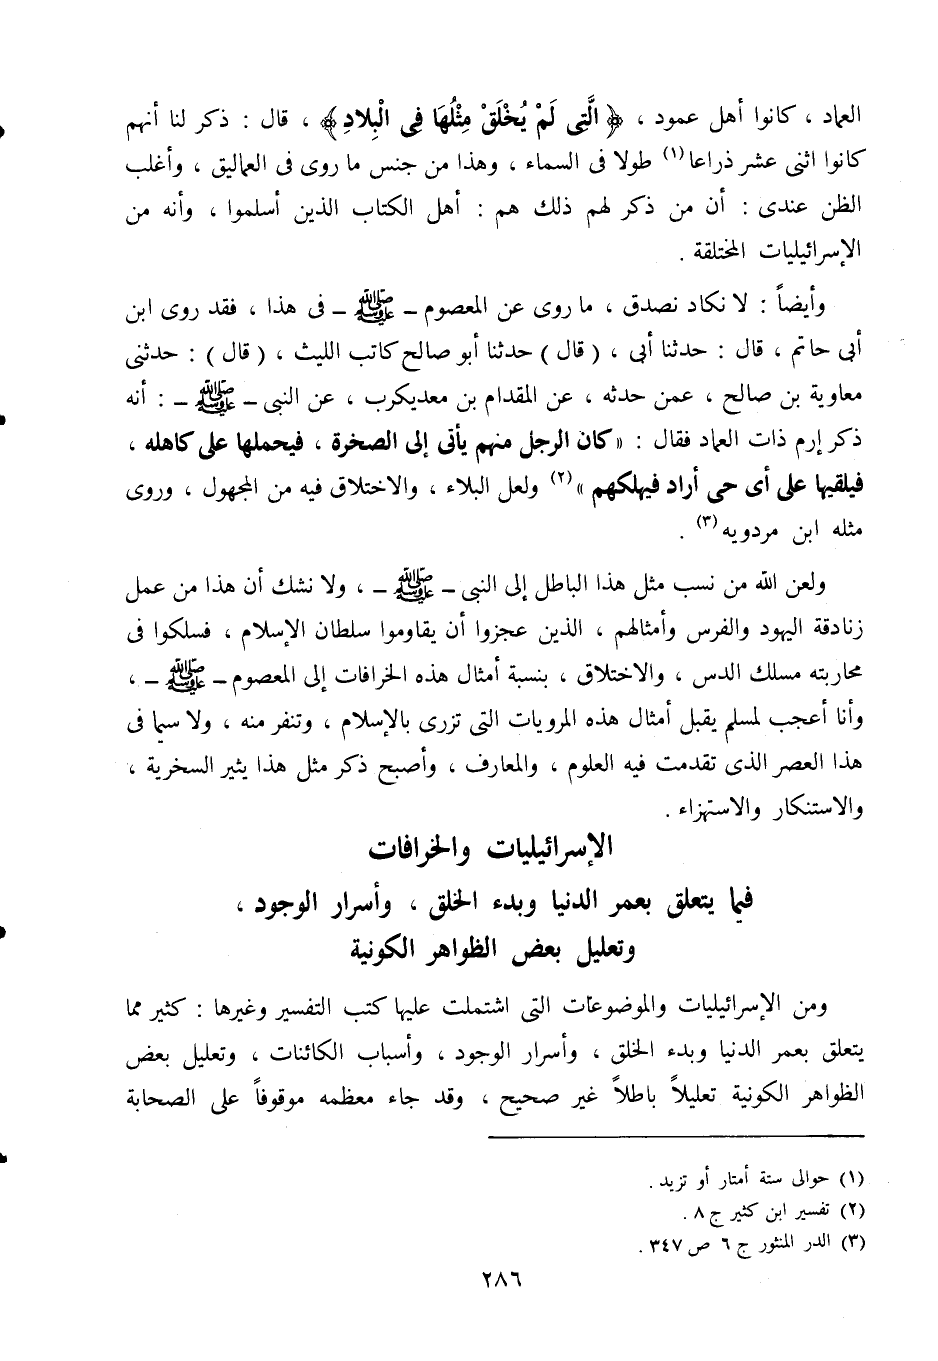 العماد ، كانوا أهل عمود ، ﴿ الَّتِي لَمْ يُخْلَقْ مِثْلُهَا فِي الْبِلادِ ﴾ ، قال : ذكر لنا أنهم
كانوا اثنى عشر ذراعا(١) طولا فى السماء ، وهذا من جنس ما روى فى العماليق ، وأغلب
الظن عندى : أن من ذكر لهم ذلك هم : أهل الكتاب الذين أسلموا ، وأنه من
الإسرائيليات المختلقة .
وأيضاً : لا نكاد نصدق ، ما روى عن المعصوم ــ ﷺ ــ فى هذا ، فقد روى ابن
أبى حاتم ، قال : حدثنا أبى ، ( قال ) حدثنا أبو صالح كاتب الليث ، ( قال ) : حدثنى
معاوية بن صالح ، عمن حدثه ، عن المقدام بن معديكرب ، عن النبى ــ ﷺ ــ : أنه
ذكر إرم ذات العماد فقال : « كان الرجل منهم يأتى إلى الصخرة ، فيحملها على كاهله ،
فيلقيها على أى حى أراد فيهلكهم »(٢) ولعل البلاء ، والاختلاق فيه من المجهول ، وروى
مثله ابن مردويه(٣) .
ولعن الله من نسب مثل هذا الباطل إلى النبى ــ ﷺ ــ ، ولا نشك أن هذا من عمل
زنادقة اليهود والفرس وأمثالهم ، الذين عجزوا أن يقاوموا سلطان الإسلام ، فسلكوا فى
محاربته مسلك الدس ، والاختلاق ، بنسبة أمثال هذه الخرافات إلى المعصوم ــ ﷺ ــ ،
وأنا أعجب لمسلم يقبل أمثال هذه المرويات التى تزرى بالإسلام ، وتنفر منه ، ولا سيما فى
هذا العصر الذى تقدمت فيه العلوم ، والمعارف ، وأصبح ذكر مثل هذا يثير السخرية ،
والاستنكار والاستهزاء .
الإسرائيليات والخرافات
فيما يتعلق بعمر الدنيا وبدء الخلق ، وأسرار الوجود ،
وتعليل بعض الظواهر الكونية
ومن الإسرائيليات والموضوعات التى اشتملت عليها كتب التفسير وغيرها : كثير مما
يتعلق بعمر الدنيا وبدء الخلق ، وأسرار الوجود ، وأسباب الكائنات ، وتعليل بعض
الظواهر الكونية تعليلاً باطلاً غير صحيح ، وقد جاء معظمه موقوفاً على الصحابة
(١) حوالى ستة أمتار أو تزيد .
(٢) تفسير ابن كثير ج ٨ .
(٣) الدر المنثور ج ٦ ص ٣٤٧ .
٢٨٦